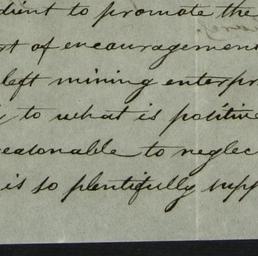 dient to promote the
rt of encouragement
left mining enterpr
to what is positive
reasonable to neglec
is so plentifully supp